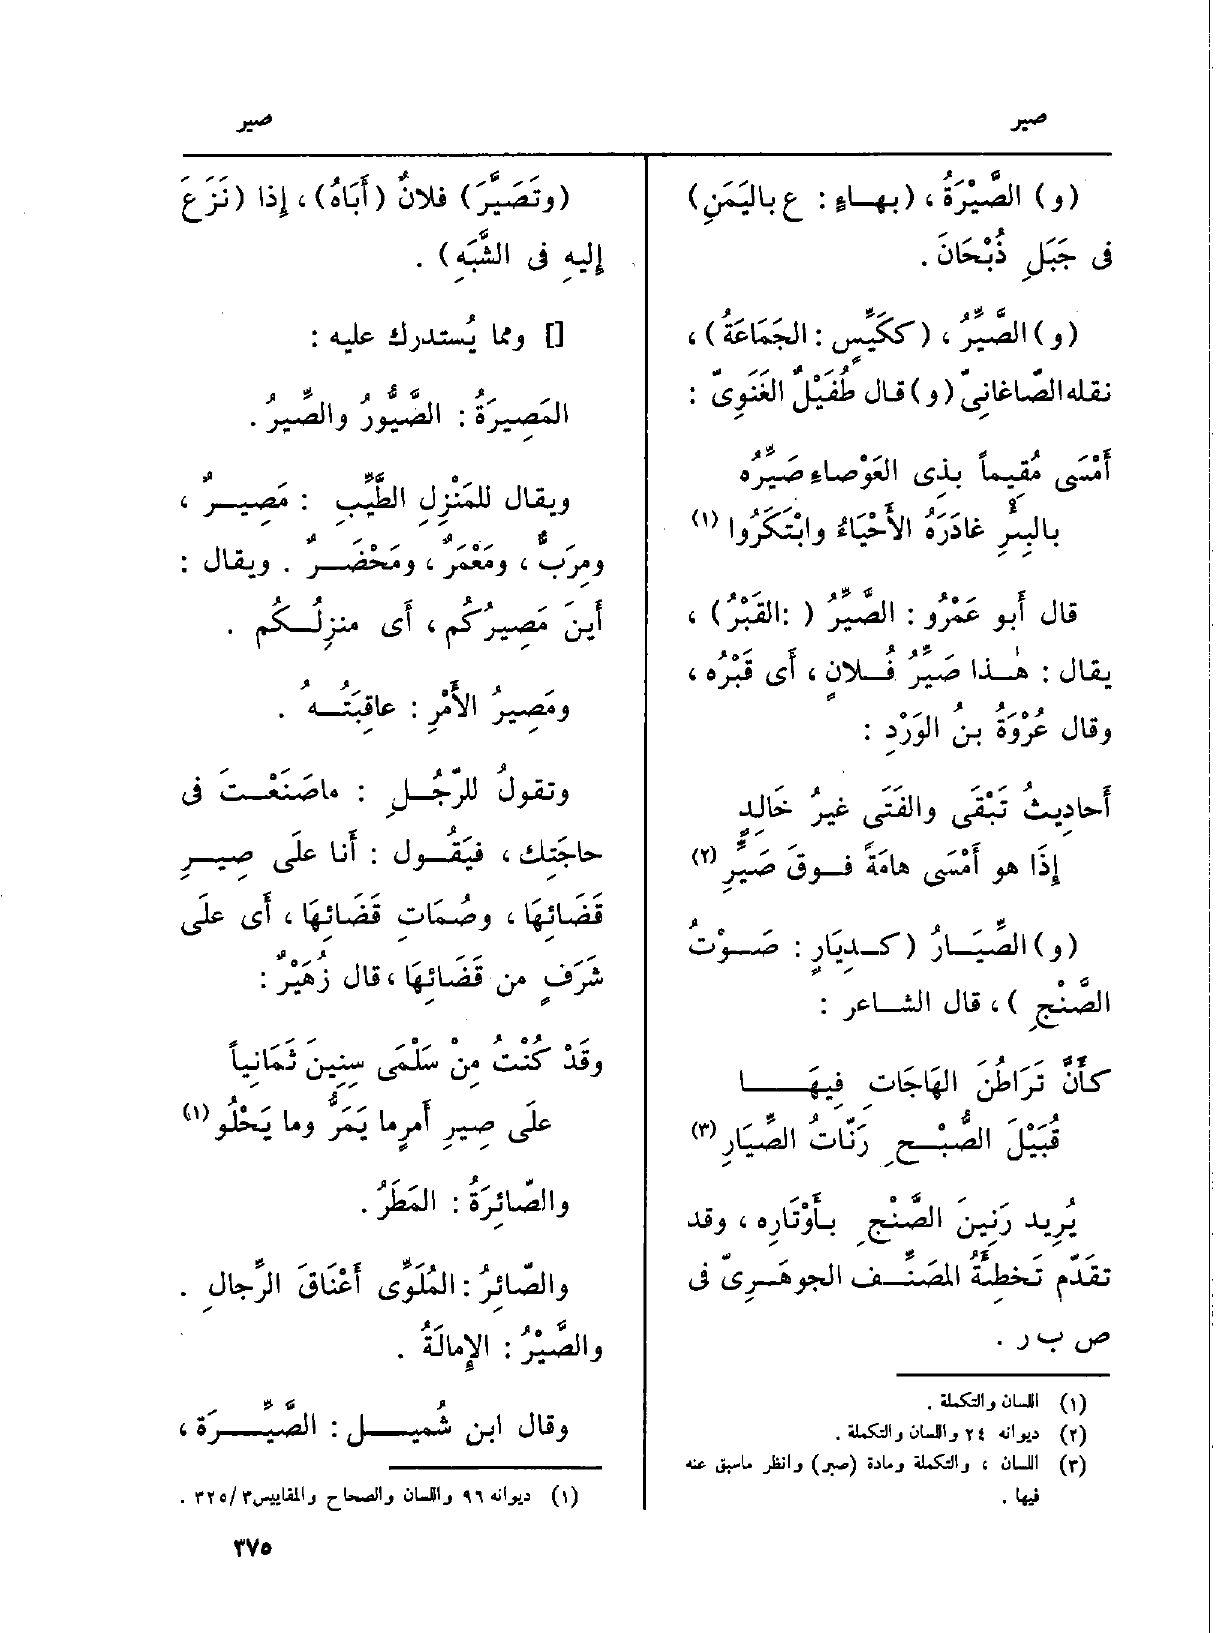 صير
صير
(و) الصَّيْرَةُ ، (بهاءٍ : ع باليَمَنِ)
فى جَبَلِ ذُبْحَانَ .
(و) الصَّيِّرُ ، (ككَيِّسٍ : الجَمَاعَةُ) ،
نقله الصّاغانِىّ (و) قال طُفَيْلٌ الغَنَوِىّ :
أَمْسَى مُقِيماً بذِى العَوْصاءِ صَيِّرُه
بالبِئْرِ غادَرَهُ الأَحْيَاءُ وابْتَكَرُوا (١)
قال أبو عَمْرٍو : الصَّيِّرُ ( :القَبْرُ) ،
يقال : هٰذا صَيِّرُ فُلانٍ ، أى قَبْرُه ،
وقال عُرْوَةُ بنُ الوَرْدِ :
أَحادِيثُ تَبْقَى والفَتَى غيرُ خَالِدٍ
إِذَا هو أَمْسَى هامَةً فوقَ صَيِّرِ (٢)
(و) الصِّيَارُ (كدِيَارٍ : صَوْتُ
الصَّنْجِ ) ، قال الشاعر :
كأَنَّ تَرَاطُنَ الهَاجَاتِ فِيهَا
قُبَيْلَ الصُّبْحِ رَنَّاتُ الصِّيَارِ (٣)
يُرِيد رَنِينَ الصَّنْجِ بأَوْتَارِه ، وقد
تقَدّم تَخطِئَةُ المصَنِّف الجوهَرِىّ فى
ص ب ر .
(١) اللسان والتكملة .
(٢) ديوانه ٢٤ واللسان والتكملة .
(٣) اللسان ، والتكملة ومادة (صبر) وانظر ماسبق عنه
فيها .
(وتَصَيَّرَ) فلانٌ (أَبَاهُ) ، إذا (نَزَعَ
إليهِ فى الشَّبَهِ) .
[] ومما يُستدرك عليه :
المَصِيرَةُ : الصَّيُّورُ والصِّيرُ .
ويقال للمَنْزِلِ الطَّيِّبِ : مَصِيرٌ ،
ومِرَبٌّ ، ومَعْمَرٌ ، ومَحْضَرٌ . ويقال :
أَينَ مَصِيرُكُم ، أى منزِلُكُم .
ومَصِيرُ الأَمْرِ : عاقِبَتُه .
وتقولُ للرّجُلِ : ماصَنَعْتَ فى
حاجَتِك ، فيَقُول : أَنا علَى صِيرِ
قَضَائِهَا ، وصُمَاتِ قَضَائِهَا ، أى علَى
شَرَفٍ من قَضَائِهَا ، قال زُهَيْرٌ :
وقَدْ كُنْتُ مِنْ سَلْمَى سِنِينَ ثَمَانِياً
علَى صِيرِ أَمرٍ ما يَمَرُّ وما يَحْلُو (١)
والصّائِرَةُ : المَطَرُ .
والصّائِرُ : المُلَوِّى أَعْنَاقَ الرِّجالِ .
والصَّيْرُ : الإِمالَةُ .
وقال ابن شُميل : الصَّيِّرَة ،
(١) ديوانه ٩٦ واللسان والصحاح والمقاييس ٣٢٥/٣ .
٣٧٥